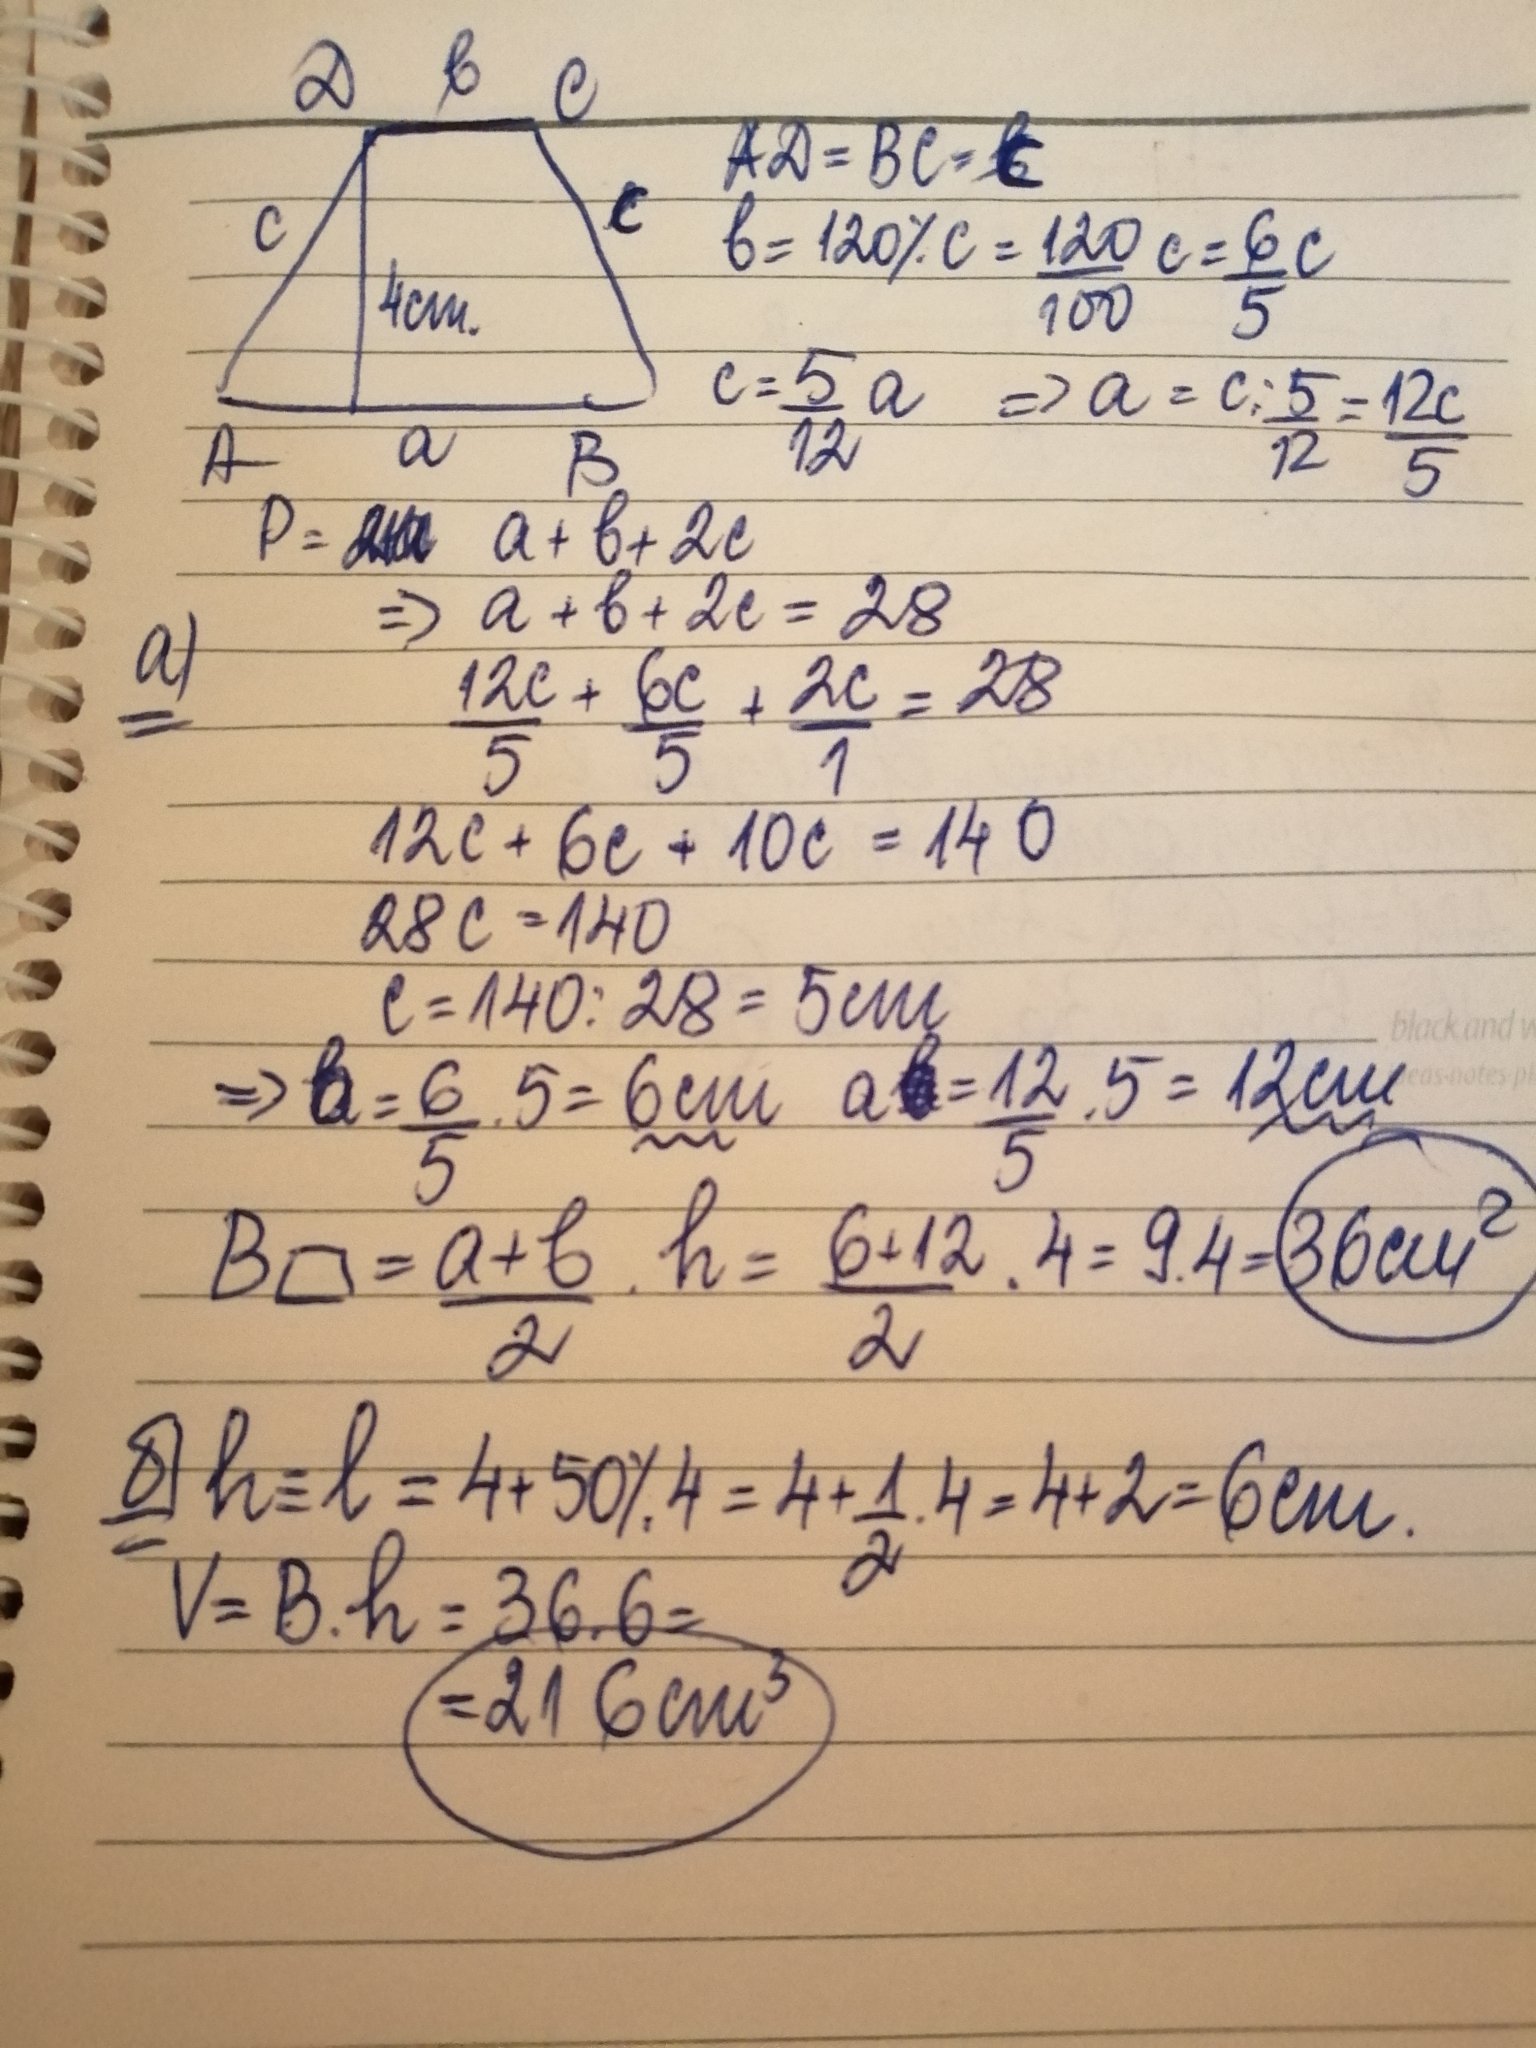 D в C
AD = BC = c
c c
в = 120% c = 120/100 c = 6/5 c
4cm.
c = 5/12 a => a = c : 5/12 = 12c/5
A a B
P = a + в + 2c
=> a + в + 2c = 28
а)
12c/5 + 6c/5 + 2c/1 = 28
12c + 6c + 10c = 140
28c = 140
c = 140 : 28 = 5cm
=> в = 6/5 . 5 = 6cm a = 12/5 . 5 = 12cm
B⏢ = a + в/2 . h = 6+12/2 . 4 = 9.4 = 36cm²
б) h = l = 4 + 50%.4 = 4 + 1/2 . 4 = 4+2 = 6cm.
V = B.h = 36.6 =
= 216cm³
black and w